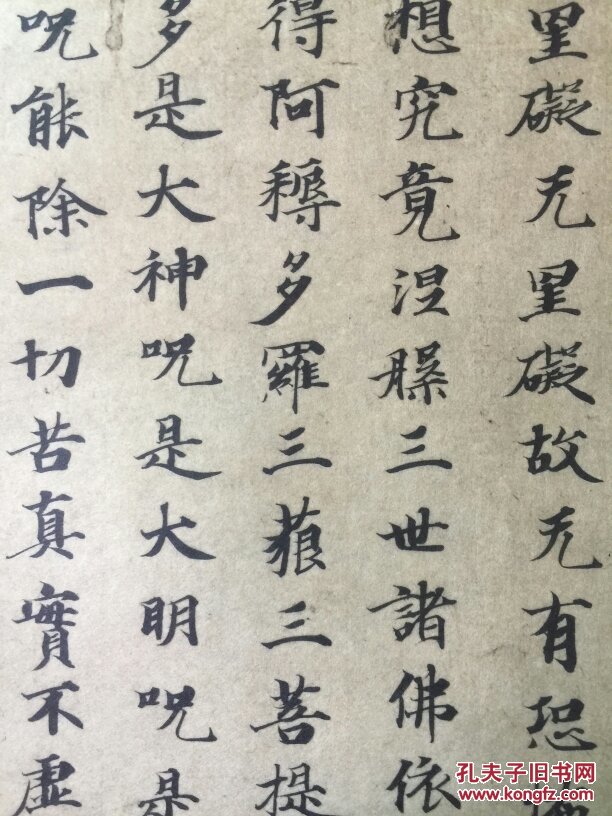 罣礙无罣礙故无有恐
想究竟涅槃三世諸佛依
得阿耨多羅三藐三菩提
多是大神呪是大明呪是
呪能除一切苦真實不虛
孔夫子旧书网
www.kongfz.com